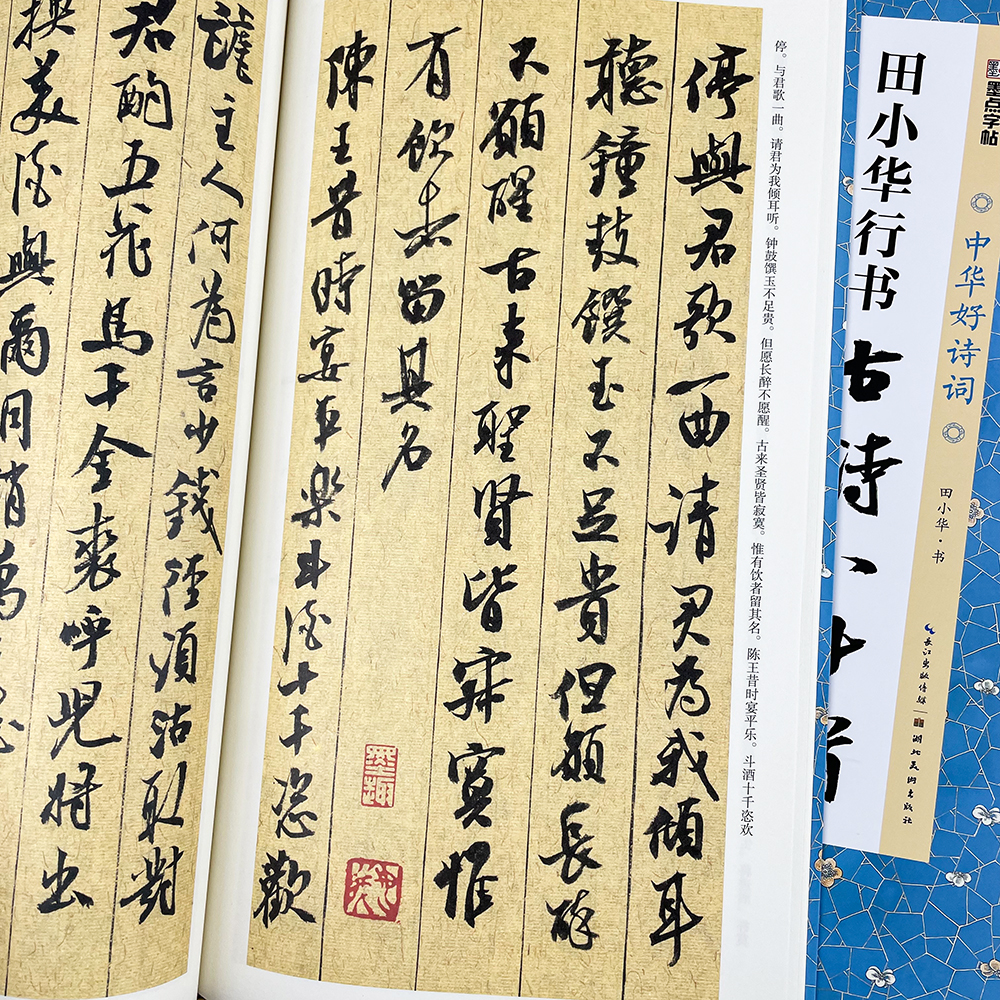 墨点字帖
中华好诗词
田小华·书
长江出版传媒 湖北美术出版社
田小华行书
古诗八十
停。与君歌一曲。请君为我倾耳听。钟鼓馔玉不足贵。但愿长醉不愿醒。古来圣贤皆寂寞。惟有饮者留其名。陈王昔时宴平乐。斗酒十千恣欢
停與君歌一曲請君為我傾耳
聽鐘鼓饌玉不足貴但願長醉
不願醒古來聖賢皆寂寞惟
有飲者留其名
墨趣
陳王昔時宴平樂斗酒十千恣歡
謔主人何為言少錢徑須沽取對
君酌五花馬千金裘呼兒將出
換美酒與爾同銷萬